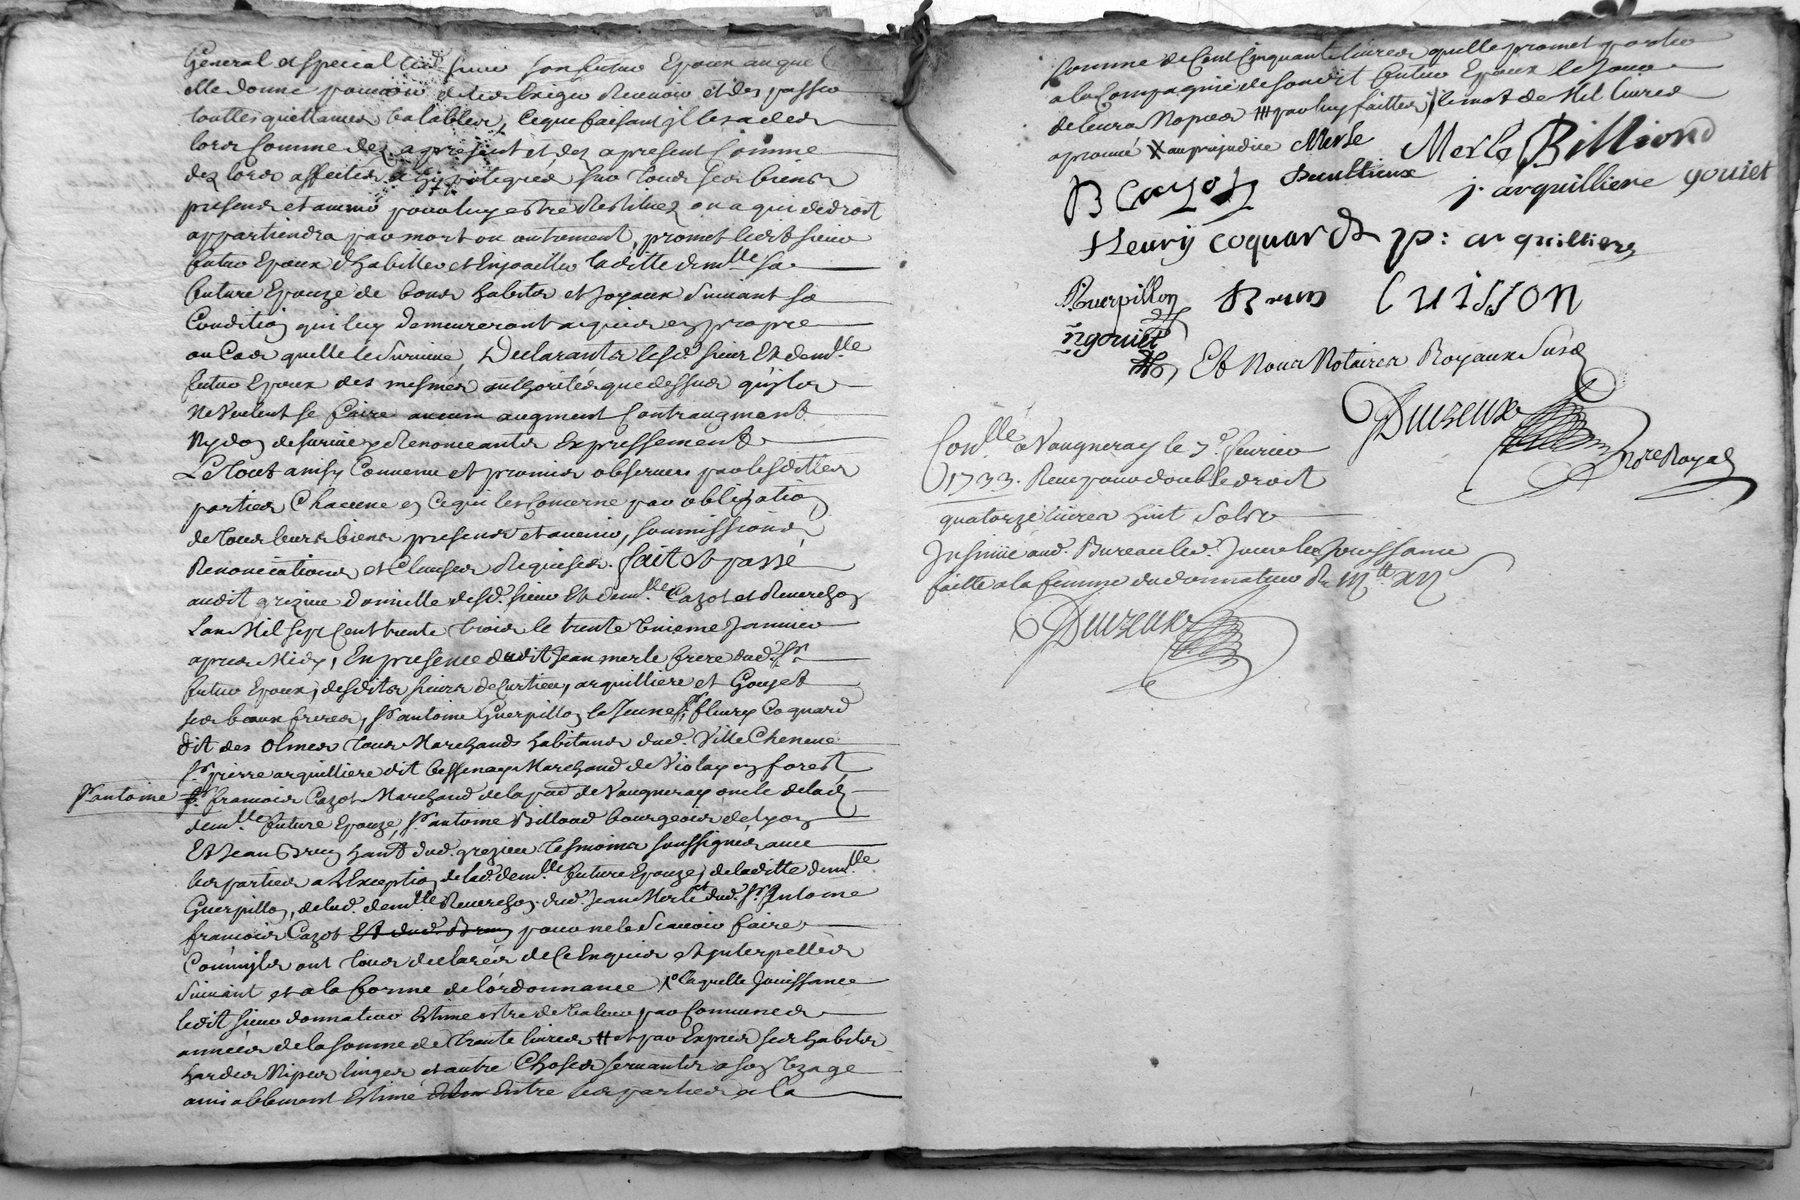 General et special dud. sieur son futur Epoux auquel
elle donne pouvoir de les Exiger Recevoir et des passer
touttes quittances Valables, Ce que faisant il les a des
lors comme dez apresent et dez apresent Comme
dez lors affectés et hypotequés sur tous ses biens
presens et avenir pour luy estre Restituez ou a qui de droit
appartiendra par mort ou autrement, promet ledit sieur
futur Epoux d'habiller et Enjoailler laditte demlle sa
future Epouze de bons habits et Joyaux Suivant sa
Condition qui luy demeureront acquis en propre
au Cas quelle le Survive, Declarants lesd. sieur Et demlle
futur Epoux des mesmes authorités que dessus qu'ils
ne veulent se faire aucun augment Contraugment
Ny don de survie y Renonceants Expressement
Le tout ainsy Convenu et promis observer par lesdittes
parties Chacune en Ce qui les Concerne par obligation
de tous leurs biens presens et avenir, soumissions
Renonciations et Clauses Requises. fait et passé
audit grezieu domicille desd. sieur Et demlle Cazot et Reverchon
Lan Mil sept Cent trente trois le trente Unieme Janvier
apres Midy, En presence dudit Jean merle frere dud. Sr.
futur Epoux, desdits sieurs de Curtieu, arquilliere et Goujet
ses beaux freres, Sr antoine Guerpillon le Jeune Sr. fleury Coquard
dit des olmes tous Marchands habitans dud. Ville Cheneve
Sr pierre arquilliere dit bessenay Marchand de Violay en forest
Sr antoine
Sr francois Cazot Marchand de la parr. de Vaugneray oncle de lad.
demlle future Epouze, Sr antoine Billoud bourgeois de Lyon
Et Jean Brun hant dud. grezieu tesmoins soussignés avec
les parties a L'Exception de lad. demlle future Epouze, de laditte demlle
Guerpillon, de lad. demlle Reverchon dud. Jean Merle et dud. Sr. Antoine
francois Cazot Et dud. Brun pour ne le Scavoir faire
Comm'ils ont tous declarés de Ce Enquis et Interpellés
Suivant et a la forme de l'ordonnance laquelle Jouissance
ledit sieur donnateur Estime estre de Valeur par Communes
années de la somme de Trente livres et par Exprés ses habits
hardes Nipes linges et autre Choses servants a son Uzage
amiablement Estimé entre les parties a la
somme de Cent Cinquante livres quelle promet porter
a la Compagnie de sondit futur Epoux le Jour
de leurs Nopces par luy faittes le mot de Mil livres
aprouvé X au prejudice Merle
Merle Billiond
B Cazot Duultieux j. arquilliere gouiet
Fleurÿ coquard p: arquilliere
Guerpillon Brun CUISSON
ngouiet
Et Nous Notaires Royaux Susd.
Duizeux
Nore Royal
Conllé a Vaugneray le 7e. fevrier
1733. Receu pour double droit
quatorze livres huit Sols
Insinué aud. Bureau led. Jour la Jouissance
faitte a la femme du donnateur
Duizeux